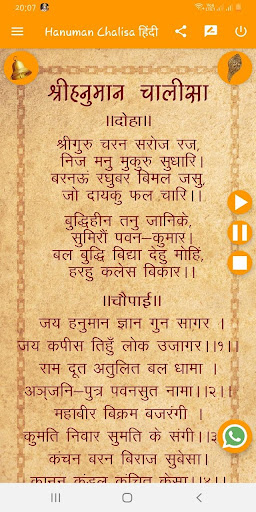 20:07
Hanuman Chalisa हिंदी
श्रीहनुमान चालीसा
॥दोहा॥
श्रीगुरु चरन सरोज रज,
निज मनु मुकुरु सुधारि।
बरनऊ रघुबर बिमल जसु,
जो दायकु फल चारि।।
बुद्धिहीन तनु जानिके,
सुमिरौं पवन-कुमार।
बल बुद्धि विद्या देहु मोहिं,
हरहु कलेस विकार।।
॥चौपाई॥
जय हनुमान ज्ञान गुन सागर ।
जय कपीस तिहुँ लोक उजागर।।१।।
राम दूत अतुलित बल धामा ।
अञ्जनि-पुत्र पवनसुत नामा।।२।।
महावीर बिक्रम बजरंगी ।
कुमति निवार सुमति के संगी।।३।।
कंचन बरन बिराज सुबेसा।
कानन कुंडल कुंचित केसा।।४।।